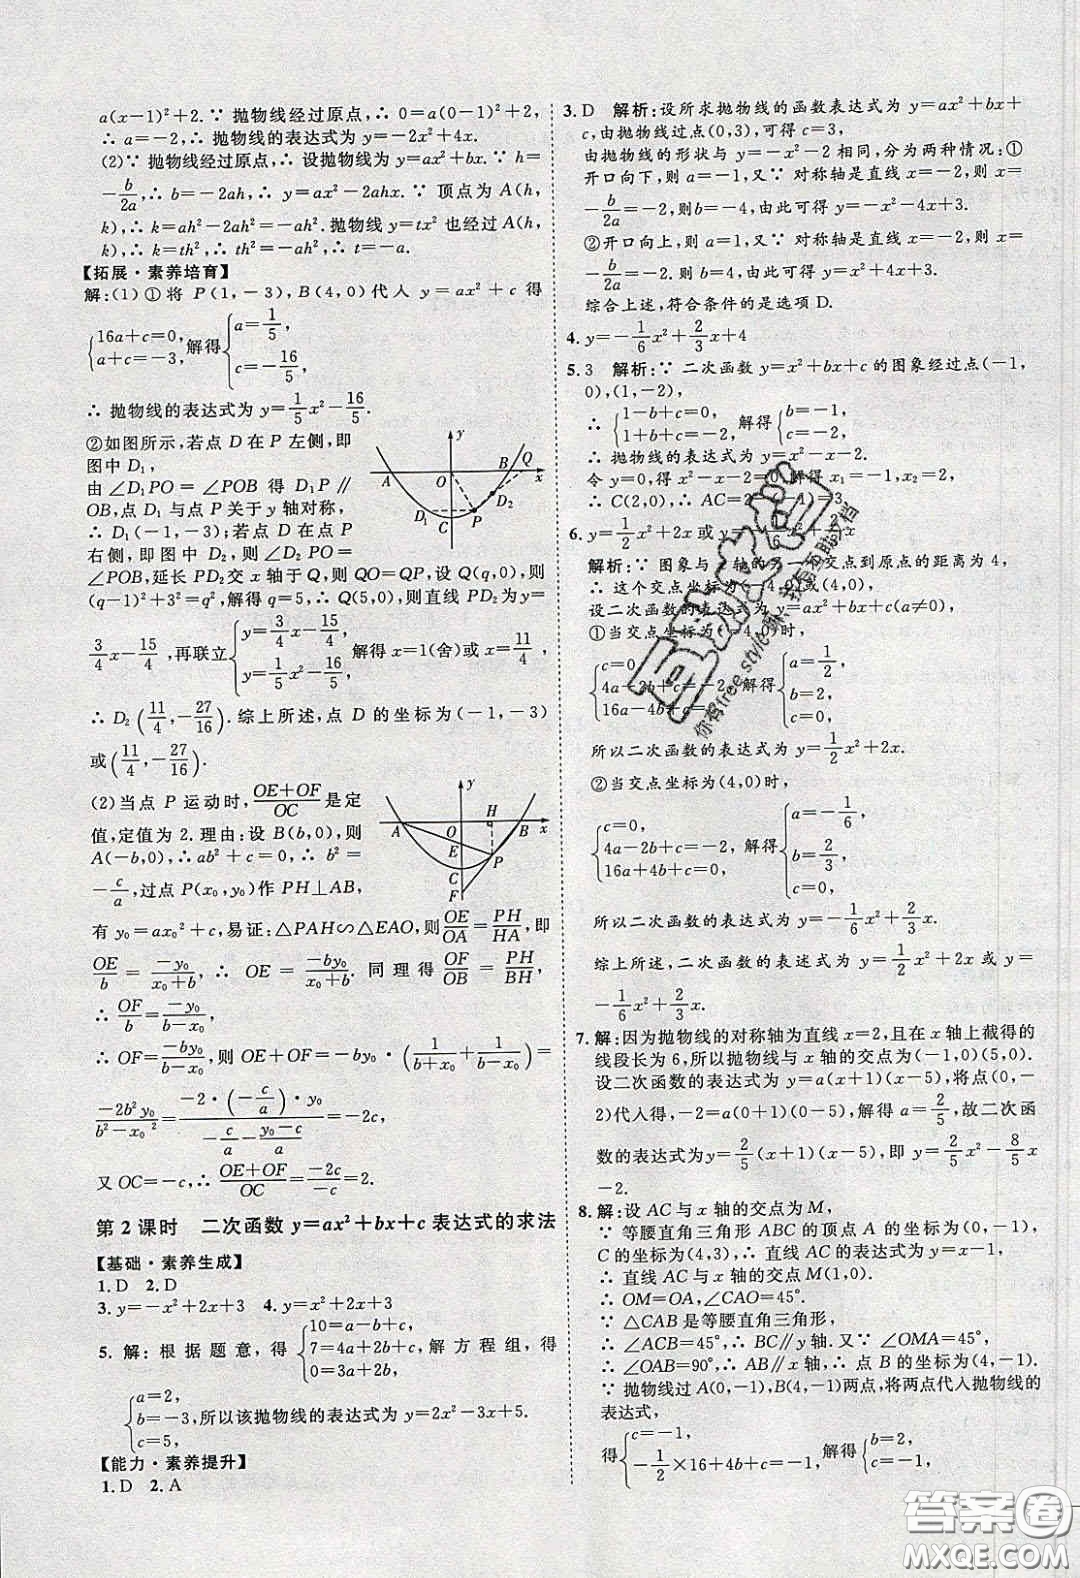 a(x-1)²+2.∵ 抛物线经过原点,∴ 0=a(0-1)²+2,
∴ a=-2,∴ 抛物线的表达式为 y=-2x²+4x.
(2)∵ 抛物线经过原点,∴ 设抛物线为 y=ax²+bx.∵ h=
-b/2a,∴ b=-2ah,∴ y=ax²-2ahx.∵ 顶点为 A(h,
k),∴ k=ah²-2ah²=-ah².抛物线 y=tx² 也经过 A(h,
k),∴ k=th²,∴ th²=-ah²,∴ t=-a.
【拓展·素养培育】
解:(1)①将 P(1,-3),B(4,0)代人 y=ax²+c 得
{16a+c=0, a+c=-3, 解得 {a=1/5, c=-16/5,
∴ 抛物线的表达式为 y=1/5x²-16/5.
②如图所示,若点 D 在 P 左侧,即
图中 D₁,
由 ∠D₁PO=∠POB 得 D₁P∥
OB,点 D₁ 与点 P 关于 y 轴对称,
∴ D₁(-1,-3);若点 D 在点 P
右侧,即图中 D₂,则 ∠D₂PO=
∠POB,延长 PD₂交 x 轴于 Q,则 QO=QP,设 Q(q,0),则
(q-1)²+3²=q²,解得 q=5,∴ Q(5,0),则直线 PD₂为 y=
3/4x-15/4,再联立{y=3/4x-15/4, y=1/5x²-16/5, 解得 x=1(舍)或 x=11/4,
∴ D₂(11/4,-27/16).综上所述,点 D 的坐标为(-1,-3)
或(11/4,-27/16).
y
A
O
B
Q
x
D₁
C
P
D₂
(2)当点 P 运动时,OE+OF/OC 是定
值,定值为 2.理由:设 B(b,0),则
A(-b,0),∴ ab²+c=0,∴ b²=
-c/a,过点 P(x₀,y₀)作 PH⊥AB,
有 y₀=ax₀²+c,易证:△PAH∽△EAO,则OE/OA=PH/HA,即
OE/b=-y₀/x₀+b,∴ OE=-by₀/x₀+b.同理得OF/OB=PH/BH,
∴ OF/b=-y₀/b-x₀,
∴ OF=-by₀/b-x₀,则 OE+OF=-by₀·(1/b+x₀+1/b-x₀)=
-2b²y₀/b²-x₀²=-2·(-c/a)·y₀/-c/a-y₀-c/a=-2c,
又 OC=-c,∴ OE+OF/OC=-2c/-c=2.
y
A
O
H
B
x
E
P
C
F
第 2 课时 二次函数 y=ax²+bx+c 表达式的求法
【基础·素养生成】
1.D 2.D
3.y=-x²+2x+3 4.y=x²+2x+3
5.解:根据题意,得{10=a-b+c, 7=4a+2b+c, 0=3a+2b, 解方程组,得
{a=2, b=-3, c=5, 所以该抛物线的表达式为 y=2x²-3x+5.
【能力·素养提升】
1.D 2.A
3.D 解析:设所求抛物线的函数表达式为 y=ax²+bx+
c,由抛物线过点(0,3),可得 c=3,
由抛物线的形状与 y=-x²-2 相同,分为两种情况:①
开口向下,则 a=-1,又∵ 对称轴是直线 x=-2,则
-b/2a=-2,则b=-4,由此可得 y=-x²-4x+3.
②开口向上,则 a=1,又∵ 对称轴是直线 x=-2,则
-b/2a=-2,则 b=4,由此可得 y=x²+4x+3.
综合上述,符合条件的是选项 D.
4.y=-1/6x²+2/3x+4
5.3 解析:∵ 二次函数 y=x²+bx+c 的图象经过点(-1,
0),(1,-2),
∴ {1-b+c=0, 1+b+c=-2, 解得{b=-1, c=-2,
∴ 抛物线的表达式为 y=x²-x-2.
令 y=0,得 x²-x-2=0,解得 x₁=-1,x₂=2,
∴ C(2,0),∴ AC=2-(-1)=3.
6.y=1/2x²+2x或y=-1/6x²+2/3x
解析:∵ 图象与 x 轴的另一个交点到原点的距离为 4,
∴ 这个交点坐标为(-4,0)或(4,0).
设二次函数的表达式为 y=ax²+bx+c(a≠0),
①当交点坐标为(-4,0)时,
{c=0, 4a-2b+c=-2, 16a-4b+c=0, 解得{a=1/2, b=2, c=0,
所以二次函数的表达式为 y=1/2x²+2x.
②当交点坐标为(4,0)时,
{c=0, 4a-2b+c=-2, 16a+4b+c=0, 解得{a=-1/6, b=2/3, c=0,
所以二次函数的表达式为 y=-1/6x²+2/3x.
综上所述,二次函数的表达式为 y=1/2x²+2x 或 y=
-1/6x²+2/3x.
7.解:因为抛物线的对称轴为直线 x=2,且在 x 轴上截得的
线段长为 6,所以抛物线与 x 轴的交点为(-1,0)(5,0).
设二次函数的表达式为 y=a(x+1)(x-5),将点(0,-
2)代人得,-2=a(0+1)(0-5),解得 a=2/5,故二次函
数的表达式为y=2/5(x+1)(x-5),即 y=2/5x²-8/5x
-2.
8.解:设 AC与 x 轴的交点为 M,
∵ 等腰直角三角形 ABC 的顶点 A 的坐标为(0,-1),
C 的坐标为(4,3),∴ 直线 AC 的表达式为 y=x-1,
∴ 直线 AC 与 x 轴的交点 M(1,0).
∴ OM=OA,∠CAO=45°.
∵ △CAB 是等腰直角三角形,
∴ ∠ACB=45°,∴ BC∥y 轴.又∵ ∠OMA=45°,
∴ ∠OAB=90°,∴ AB∥x 轴,∴ 点 B 的坐标为(4,-1).
∵ 抛物线过 A(0,-1),B(4,-1)两点,将两点代入抛物线的
表达式,
得{c=-1, -1/2×16+4b+c=-1, 解得{b=2, c=-1,
答案圈
MXQE.COM